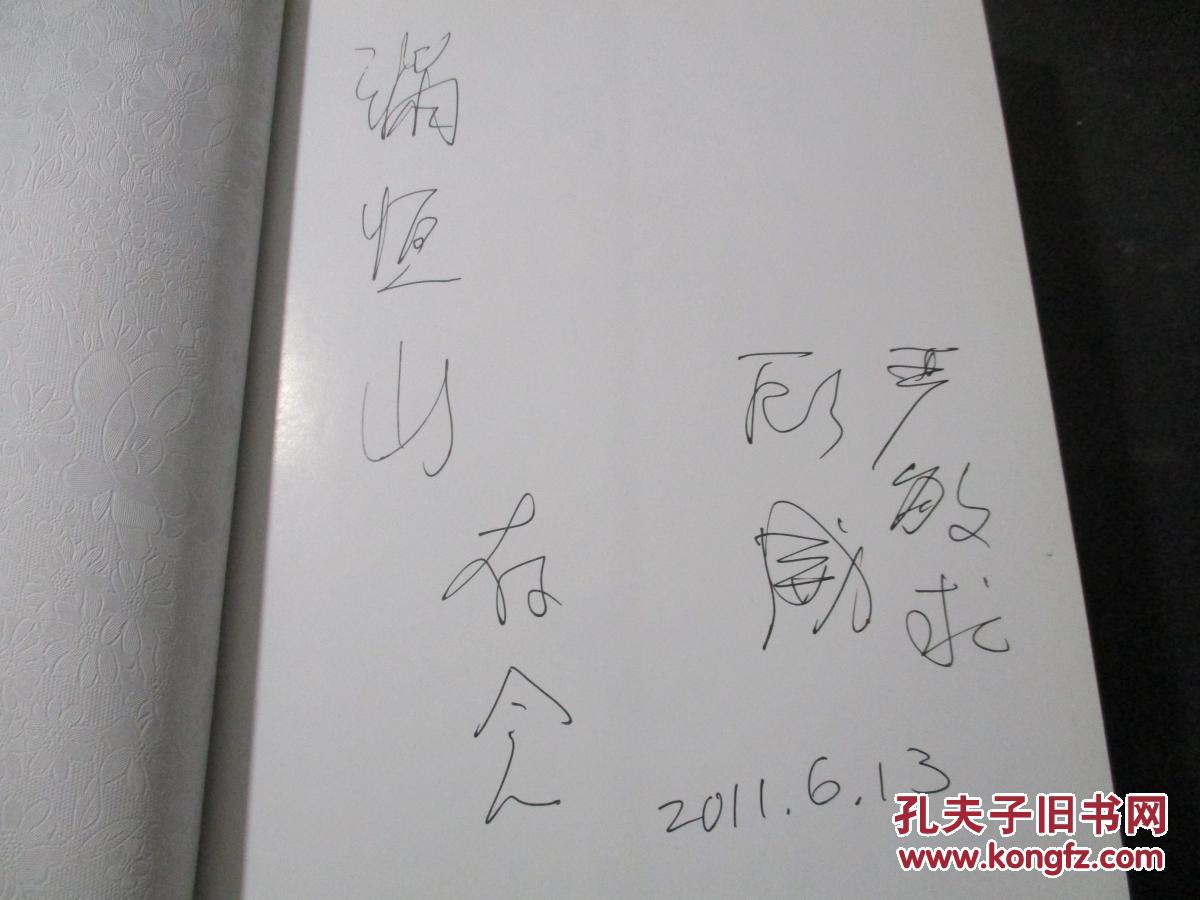 满恒山
存念
严敏求
顾威
2011.6.13
孔夫子旧书网
www.kongfz.com